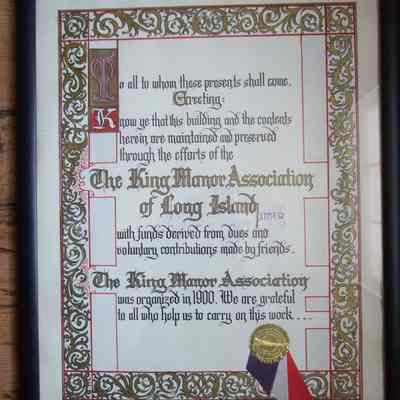 To all to whom these presents shall come,
Greeting:
Know ye that this building and the contents
herein are maintained and preserved
through the efforts of the
The King Manor Association
of Long Island
with funds derived from dues and
voluntary contributions made by friends.
The King Manor Association
was organized in 1900. We are grateful
to all who help us to carry on this work....